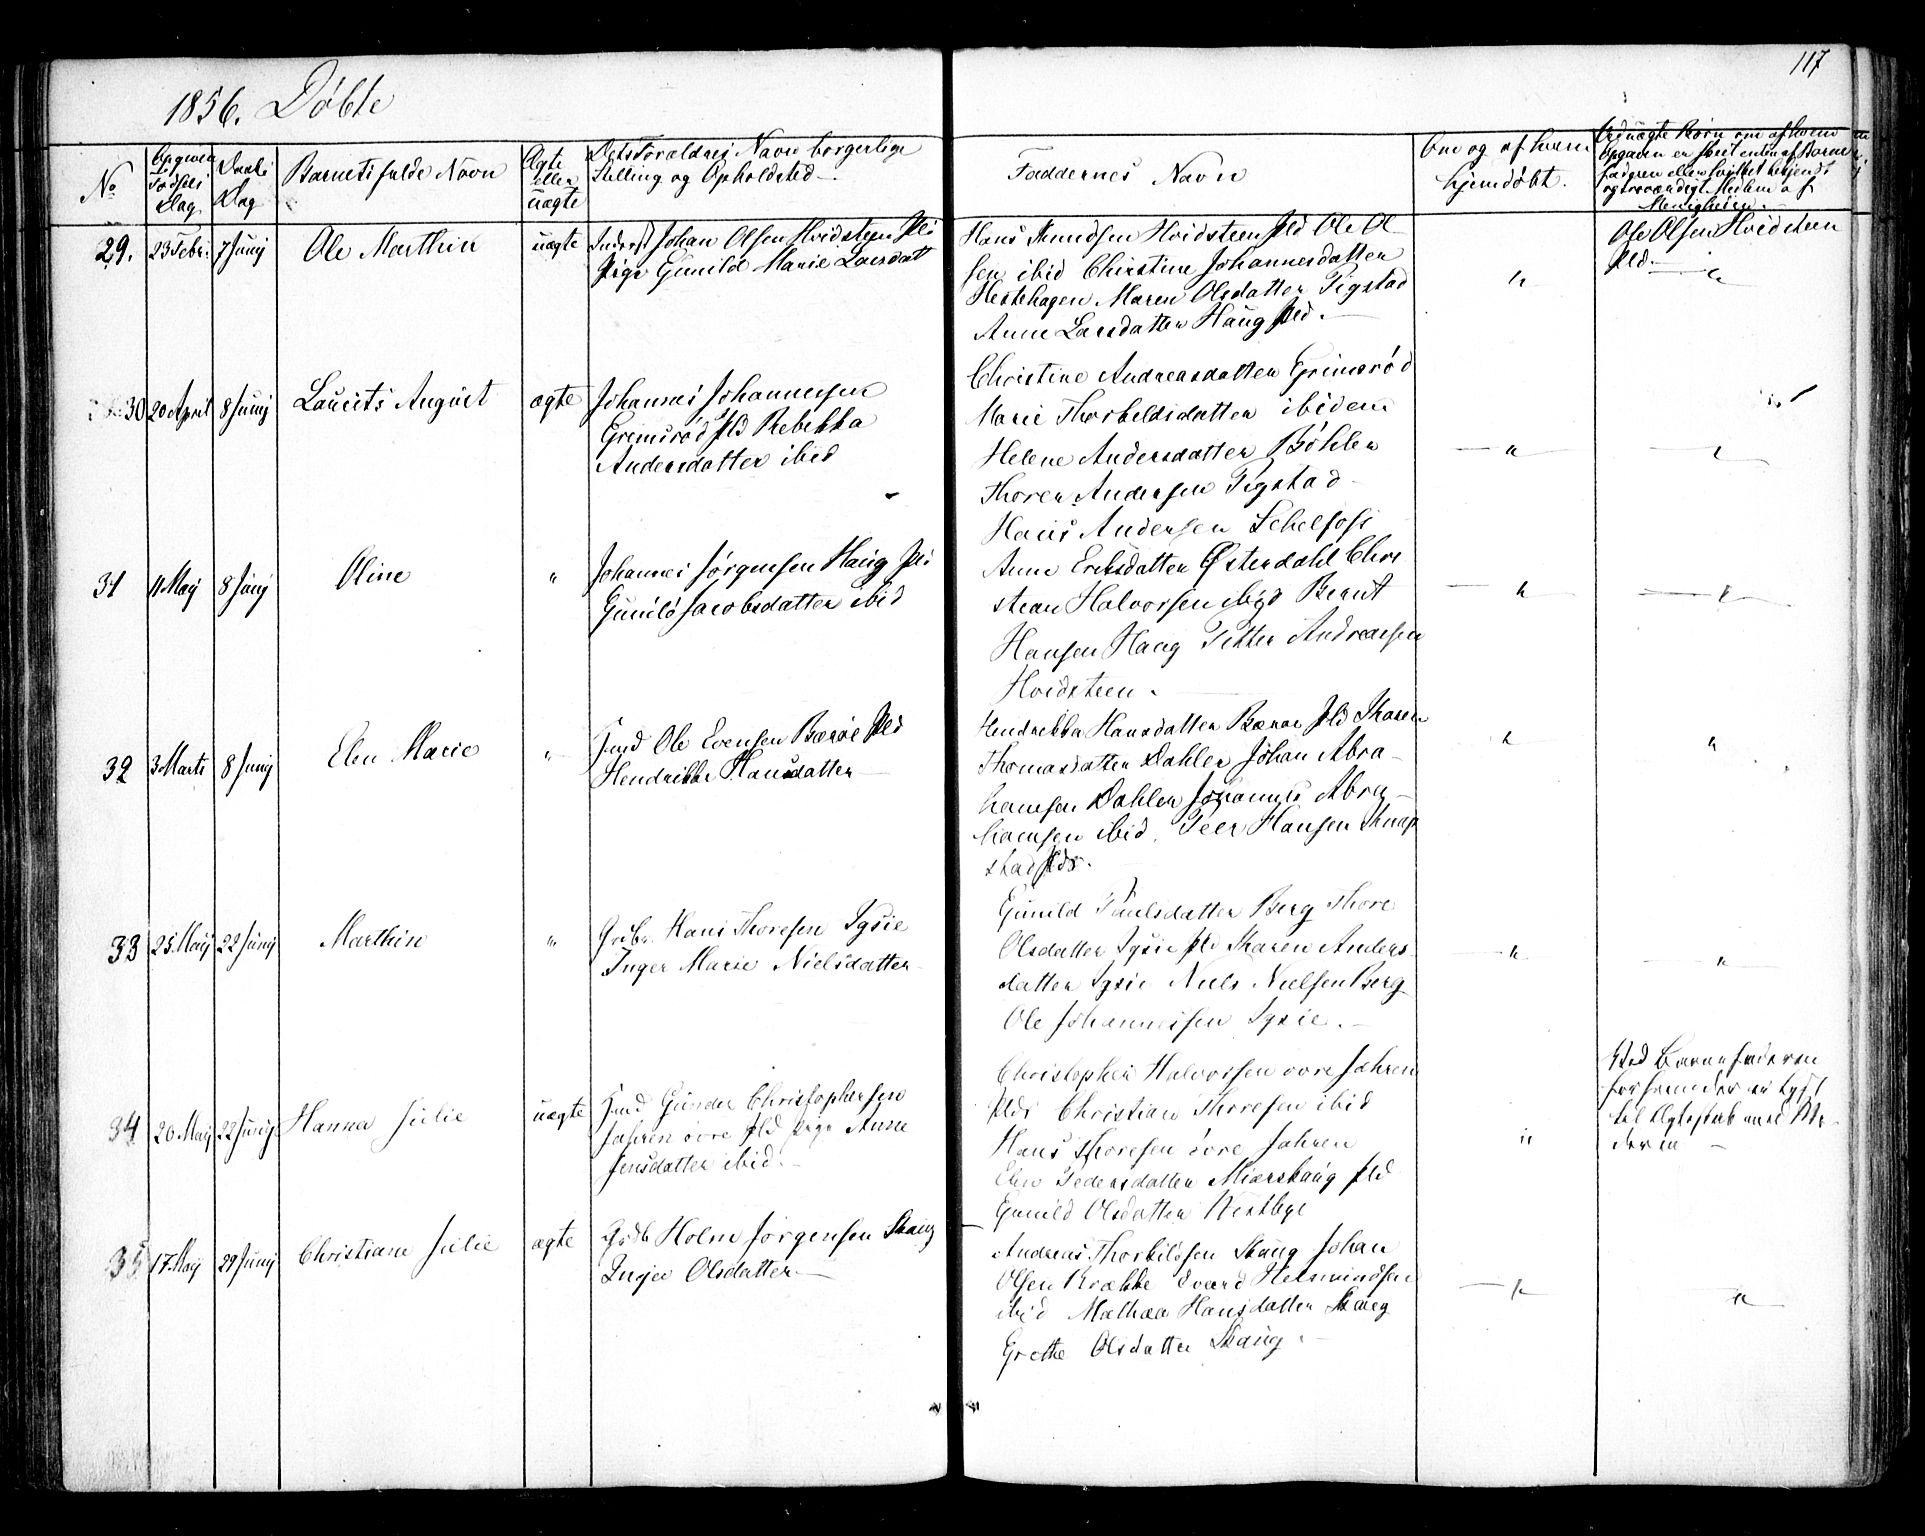 117
1856. Døbte
No
Opgiven Fødsels Dag
Daabs Dag
Barnets fulde Navn
Ægte eller uægte
Dets Forældres Navn borgerlige
Stilling og Opholdsted
Faddernes Navn
Om og af hvem
hjemdøbt.
Ved uægte Børn om af hvem
Opgaven er skeet enten af Barne
faderen eller hvilket bekjendt
og troværdigt Medlem af
Menigheden.
29. 23 Febr. 7 Junij Ole Marthin uægte Inderst Johan Olsen Hvidsteen Pld
Pige Gunild Marie Larsdat
Hans Knudsen Hvidsteen Pld Ole Ol
sen ibid Christine Johannesdatter
Hestehagen Maren Olsdatter Tigstad
Anne Larsdatter Haug Pld.
"
Ole Olsen Hvidsteen
Pld. "
30 20 April 8 Junij Laurits August ægte Johannes Johannessen
Grimsrød Pld Rebekka
Andersdatter ibid
Christine Andreasdatter Grimsrød
Marie Thorkeldsdatter ibidem
Helene Andersdatter Bøhler
Thoren Andersen Tigstad
Hans Andersen Schelfoss
" "
31 11 May 8 Junij Oline " Johannes Jørgensen Haug Pld
Gunild Jacobsdatter ibid
Anne Eriksdatter Østerdahl Chri
stian Halvorsen ibid Berut
Hansen Haug Petter Andreasen
Hvidsteen.
" "
32 3 Marts 8 Junij Elen Marie " Huud Ole Evensen Bærøe Pld
Hendrikke Hansdatter
Hendrikka Hansdatter Bærøe Pld Karen
Thomasdatter Dahler Johan Abra-
hamsen Dahler Johannes Abra-
hamsen ibid. Peer Hansen Knap
stad Pld.
" "
33 25 Maij 22 Junij Marthin " Grdbr. Hans Thoresen Sysie
Inger Marie Nielsdatter
Gunild Paulsdatter Berg Thore
Olsdatter Sysie Pld Karen Anders
datter Sysie Niels Nielsen Berg
Ole Johannessen Sysie.
" "
34 20 Maij 22 Junij Hanna Julie uægte Huud Gunder Christophersen
Jahren øvre Pld Pige Anne
Jensdatter ibid.
Christopher Halvorsen øvre Jahren
Pld Christian Thoresen ibid
Hans Thoresen øvre Jahren
Elen Pedersdatter Miærskaug Pld
Gunild Olsdatter Westbye
"
Ved Barnefaderen
Forhemeder er lyst
til Ægteskab med Mo-
deren
35 17 Maij 29 Junij Christiane Julie ægte Grdb Holm Jørgensen Skaug
Inger Olsdatter
Andreas Thorkildsen Skaug Johan
Olsen Krække Svend Helmundsen
ibid Mathea Hansdatter Skaug
Grethe Olsdatter Skaug.
" "